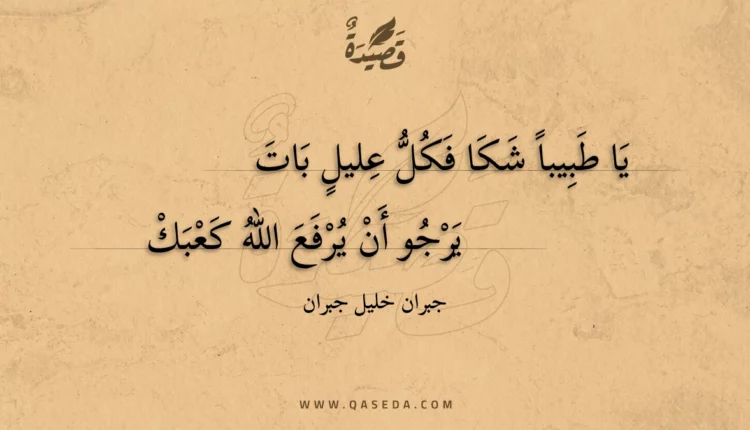 قَصِيدَةٌ
يَا طَبِيباً شَكَا فَكُلُّ عِليلٍ بَاتَ
يَرْجُو أَنْ يُرْفَعَ اللهُ كَعْبَكْ
جبران خليل جبران
WWW.QASEDA.COM